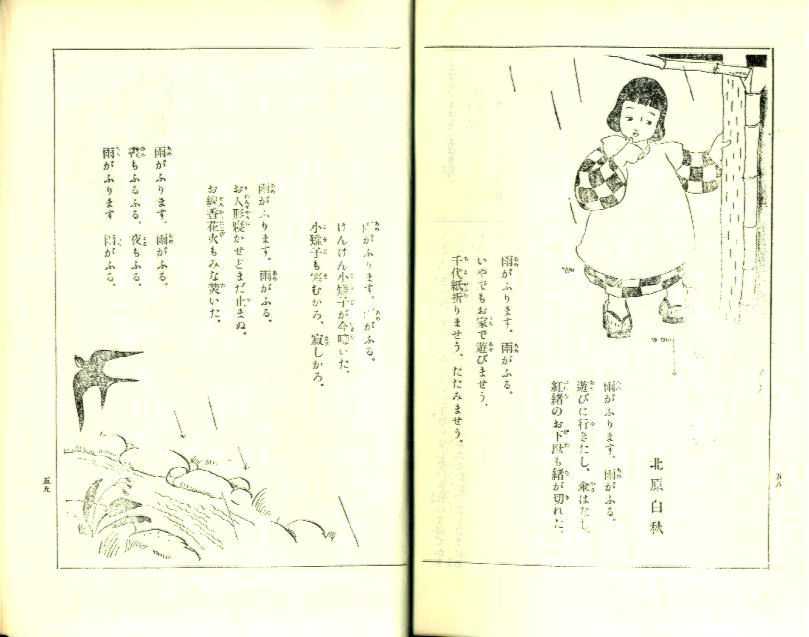 北原白秋
雨がふります。雨がふる。
遊びに行きたし、傘はなし、
紅緒のお下駄も緒が切れた。
雨がふります。雨がふる。
いやでもお家で遊びませう、
千代紙折りませう、たたみませう。
雨がふります。雨がふる。
けんけん小雉子が今啼いた、
小雉子も寒むかろ、寂しかろ。
雨がふります。雨がふる。
お人形寝かせどまだ止まぬ。
お線香花火もみな焚いた。
雨がふります。雨がふる。
昼もふるふる。夜もふる。
雨がふります 雨がふる。
五八
五九